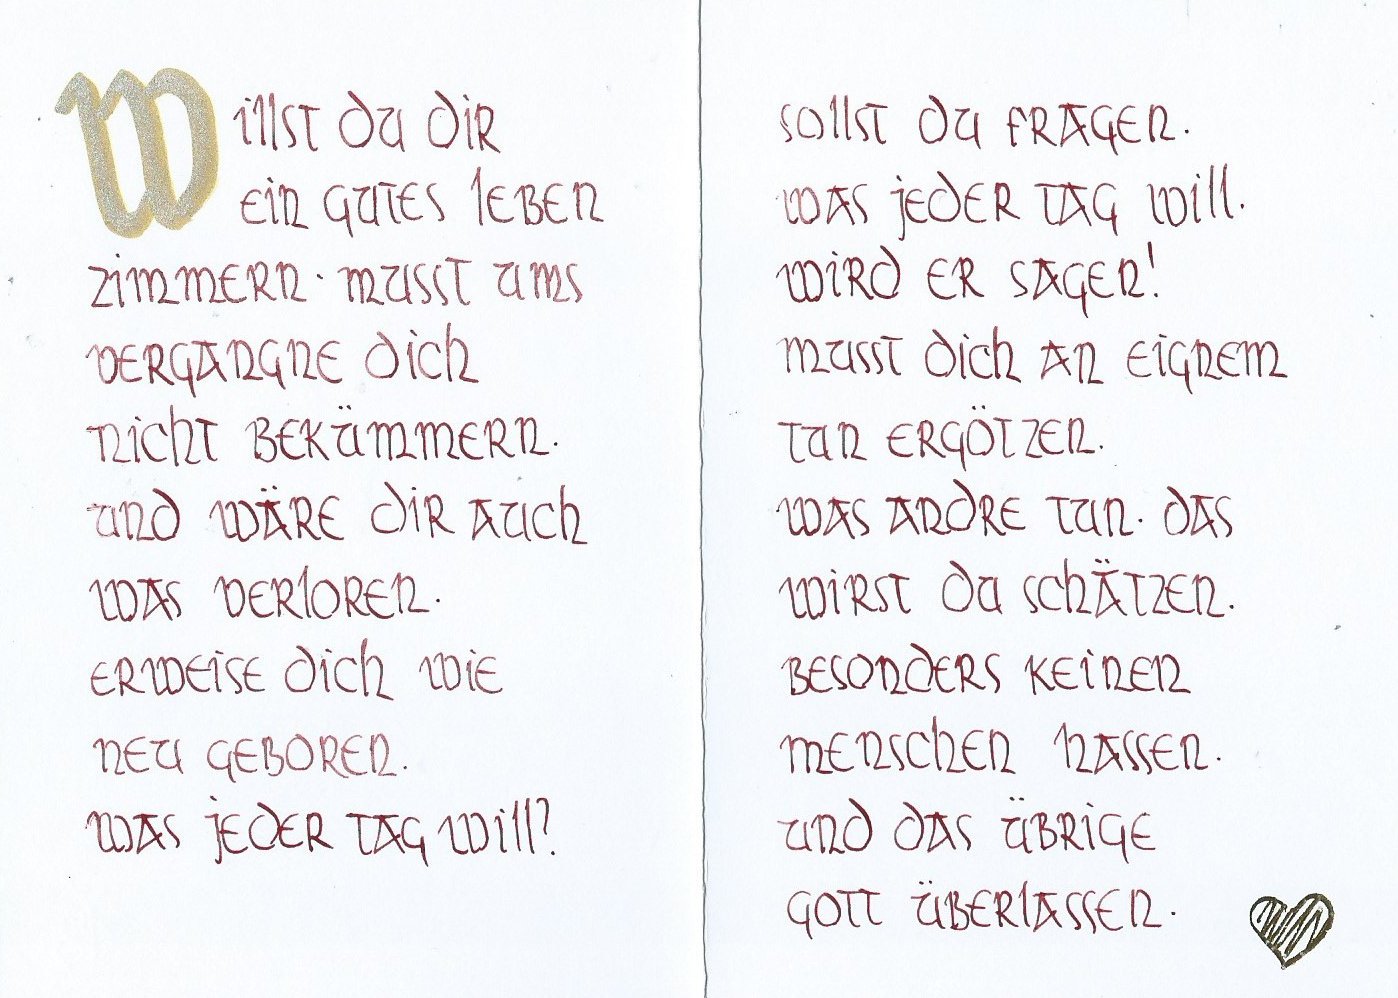 Willst du dir
ein gutes leben
zimmern· musst ums
vergangne dich
nicht bekümmern.
und wäre dir auch
was verloren.
erweise dich wie
neu geboren.
was jeder tag will?
sollst du fragen.
was jeder tag will.
wird er sagen!
musst dich an eignem
tun ergötzen.
was andre tun. das
wirst du schätzen.
besonders keinen
menschen hassen.
und das übrige
gott überlassen.